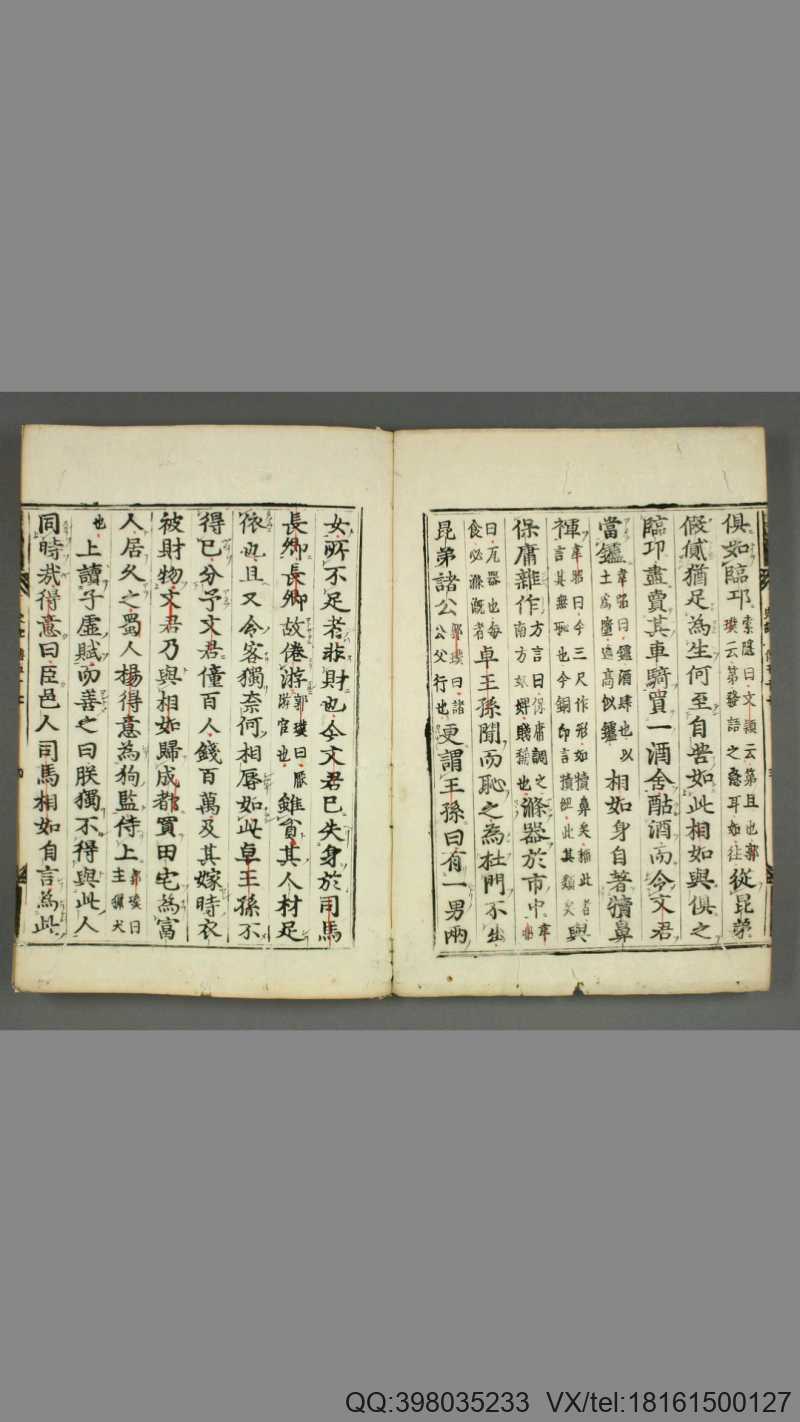 俱如臨邛索隱曰文穎云第且也郭璞云第發語之急耳如往從昆弟
假貸猶足為生何至自苦如此相如與俱之
臨邛盡賣其車騎買一酒舍酤酒而令文君
當鑪韋昭曰鑪酒肆也以土為墮邊高似鑪相如身自著犢鼻
褌韋昭曰今三尺作形如犢鼻矣稱此者言其無恥也今銅印言犢紐此其類矣與
保庸雜作方言曰保庸謂之南方奴婢賤稱也滌器於市中韋昭
曰瓦器也每食必滌溉者卓王孫聞而恥之為杜門不出
昆弟諸公郭璞曰諸公父行也更謂王孫曰有一男兩
女所不足者非財也今文君已失身於司馬
長卿長卿故倦游郭璞曰厭游宦也雖貧其人材足
依也且又令客獨奈何相辱如此卓王孫不
得已分予文君僮百人錢百萬及其嫁時衣
被財物文君乃與相如歸成都買田宅為富
人居久之蜀人楊得意為狗監侍上郭璞曰主獵犬
也上讀子虛賦而善之曰朕獨不得與此人
同時哉得意曰臣邑人司馬相如自言為此
QQ:398035233 VX/tel:18161500127